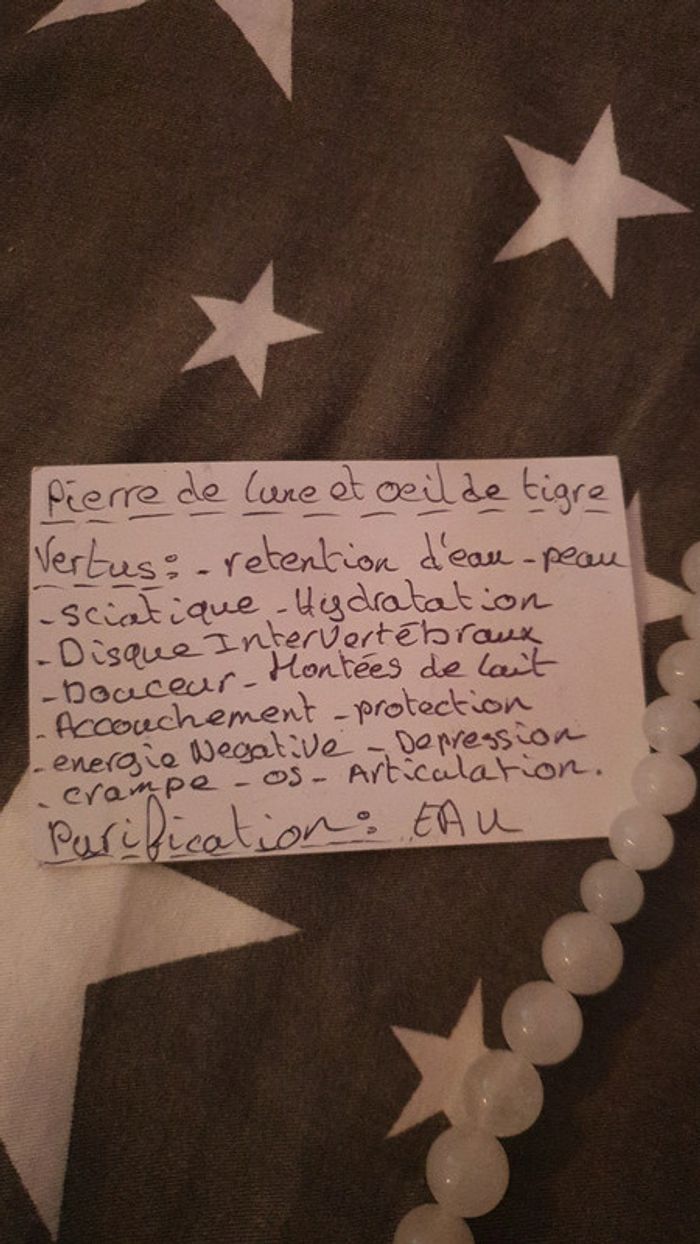 Pierre de lune et oeil de tigre
Vertus : - retention d'eau - peau
- sciatique - Hydratation
- Disque InterVertébraux
- Douceur - Montées de lait
- Accouchement - protection
- energie Negative - Depression
- crampe - os - Articulation.
Purification : EAU